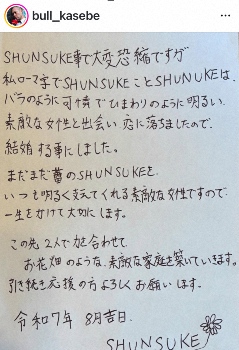 bull_kasebe
SHUNSUKE事で大変恐縮ですが
私ローマ字でSHUNSUKEことSHUNUKEは、
バラのように可憐でひまわりのように明るい、
素敵な女性と出会い 恋に落ちましたので、
結婚する事にしました。
まだまだ蕾のSHUNSUKEを
いつも明るく支えてくれる素敵な女性ですので
一生をかけて大切にします。
この先2人で力を合わせて
お花畑のような、素敵な家庭を築いていきます。
引き続き応援の方よろしくお願いします。
令和7年 8月吉日
SHUNSUKE